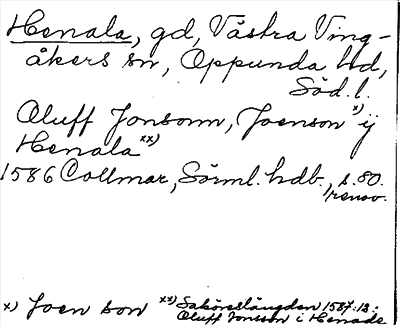 Henala, gd, Västra Ving-
åkers sn, Oppunda hd,
Söd. l.
Oluff Jonsonn, Joenson x) ij
Henala xx)
1586 Collmar, Sörml. hdb., s. 80.
renov.
x) Joen son xx) Saköreslängden 1587:13:
Oluff Jonsson i Henade